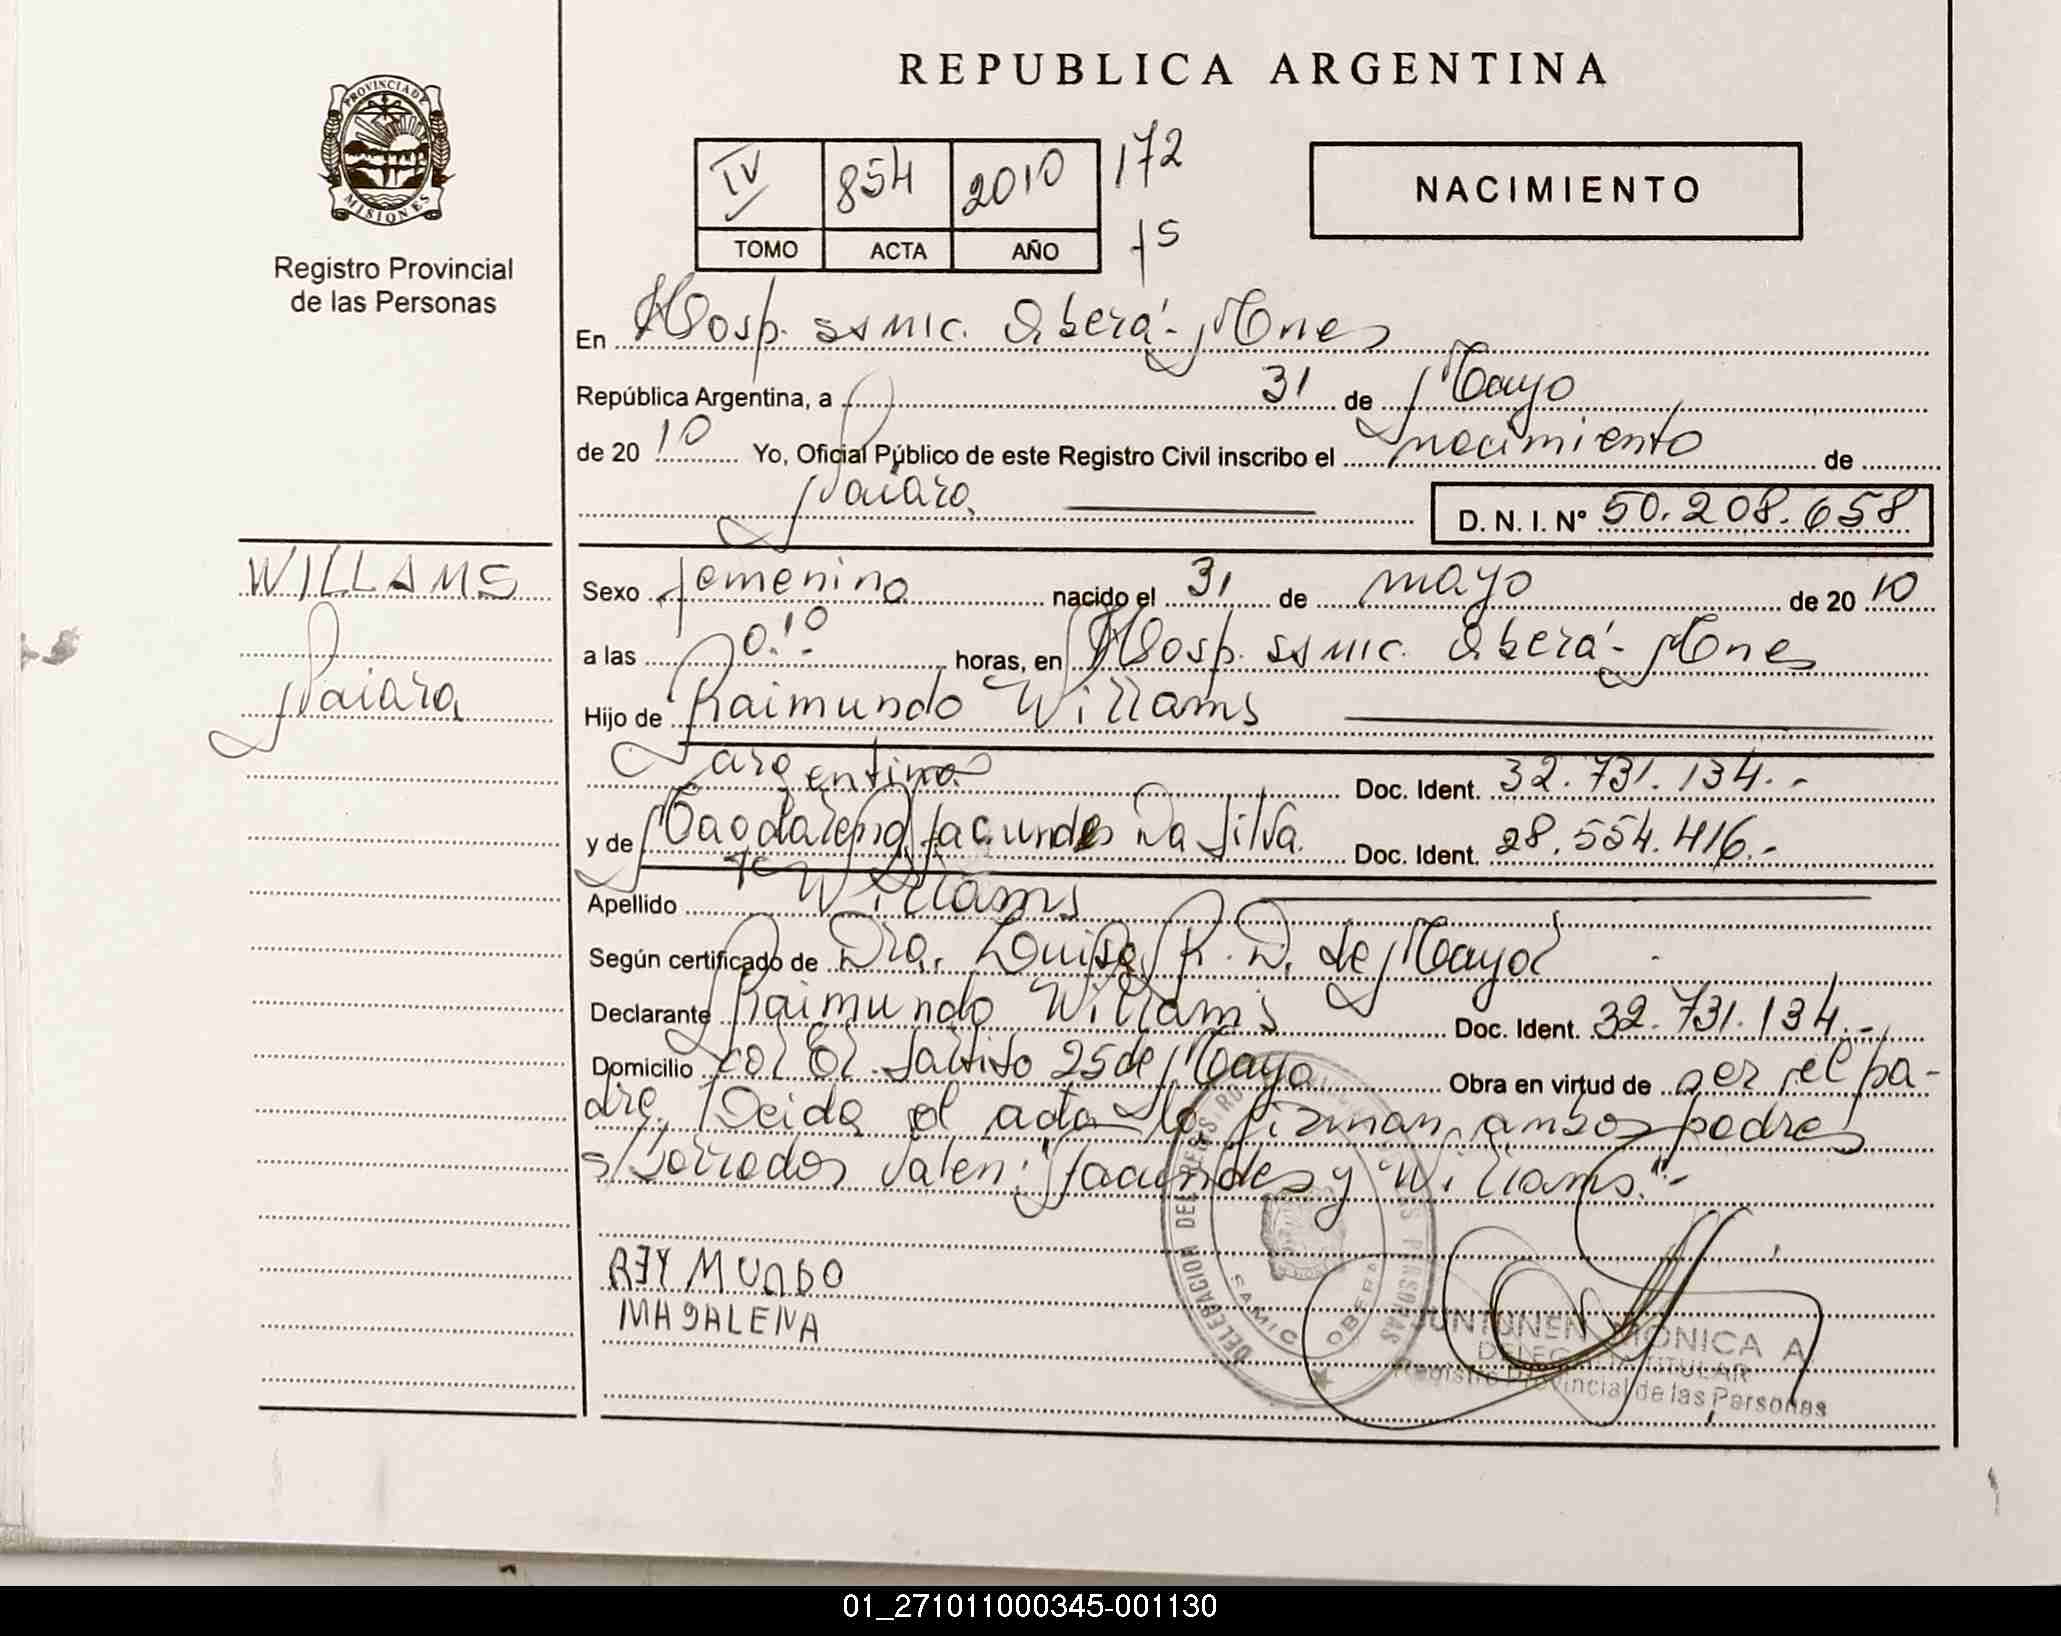 REPUBLICA ARGENTINA
PROVINCIA DE MISIONES
Registro Provincial
de las Personas
IV 854 2010 172
TOMO ACTA AÑO
NACIMIENTO
En Hosp. ssmic. Oberá - Mnes
República Argentina, a 31 de Mayo
de 2010 Yo, Oficial Público de este Registro Civil inscribo el nacimiento de
Naiara,
D. N. I. Nº 50.208.658
WILLAMS
Naiara
Sexo femenino nacido el 31 de mayo de 2010
a las 0.10 horas, en Hosp. ssmic. Oberá - Mnes
Hijo de Raimundo Willams
argentino Doc. Ident. 32.731.134.-
y de Magdalena facundes Da Silva Doc. Ident. 28.554.416.-
Apellido Willams
Según certificado de Dra. Luisa R. D. de Mayol
Declarante Raimundo Willams Doc. Ident. 32.731.134.-
Domicilio Col El Saltito 25 de Mayo Obra en virtud de ser el pa-
dre. Leida el acta la firman ambos padres
s/borrados valen: "facundes y "Willams".-
REYMUNDO
MAGALENA
DELEGACION DEL REG PERSONAS
SAMIC OBERA
JUNTUNEN MONICA A
DELEGADA TITULAR
Registro Provincial de las Personas
01_271011000345-001130